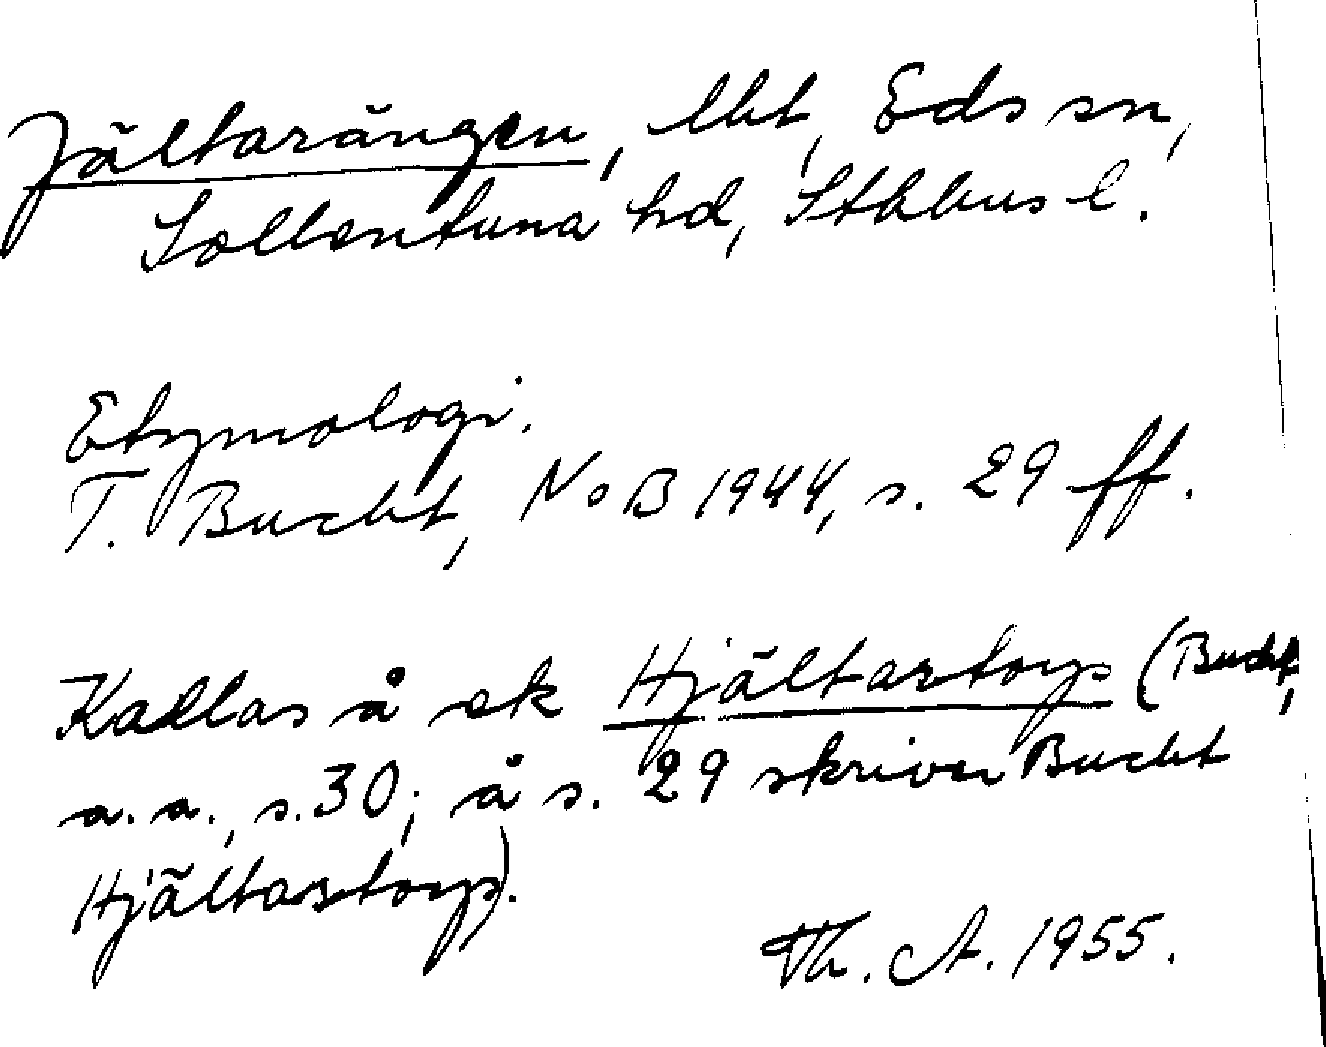 Jältarängen, lht, Eds sn,
Sollentuna hd, Sthlms l.
Etymologi.
T. Bucht, NoB 1944, s. 29 ff.
Kallas å ek Hjältartorp (Bucht,
a.a., s. 30; å s. 29 skriver Bucht
Hjältastorp).
Th. A. 1955.